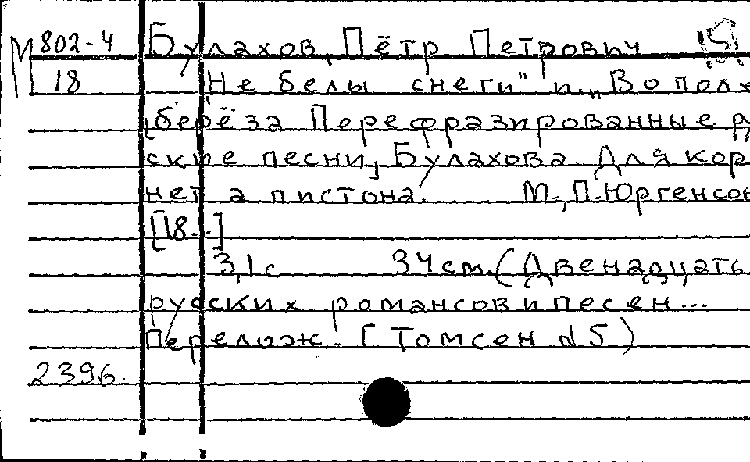 М 802-4 Булахов, Пётр Петрович
18 "Не белы снеги" и "Во поле
береза Перефразированные ру
ские песни, Булахова Для кор
нет а пистона. М., П. Юргенсон
[18..]
3,1 с 34 см. (Двенадцать
русских романсов и песен...
Перелож. [Томсен N 5)
2396.